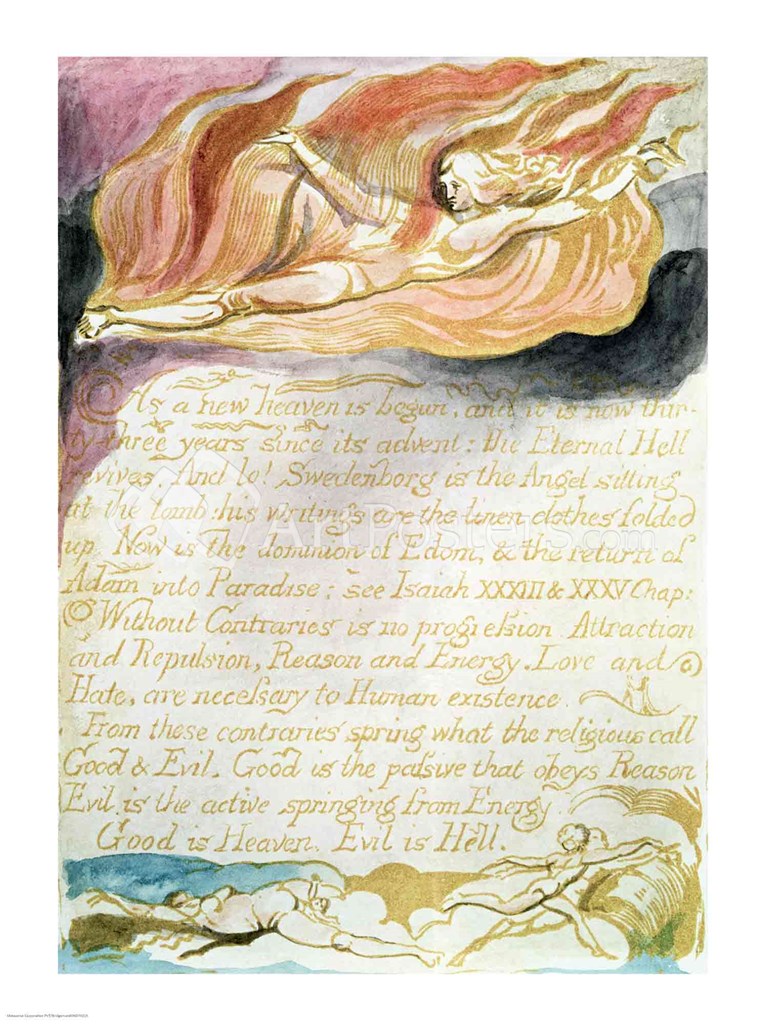 As a new heaven is begun, and it is now thir-
ty-three years since its advent: the Eternal Hell
revives. And lo! Swedenborg is the Angel sitting
at the tomb: his writings are the linen clothes folded
up. Now is the dominion of Edom, & the return of
Adam into Paradise; see Isaiah XXXIII & XXXV Chap:
Without Contraries is no progreſsion. Attraction
and Repulsion, Reason and Energy, Love and
Hate, are neceſsary to Human existence.
From these contraries spring what the religious call
Good & Evil. Good is the paſsive that obeys Reason
Evil is the active springing from Energy.
Good is Heaven. Evil is Hell.
ArtPosters.com